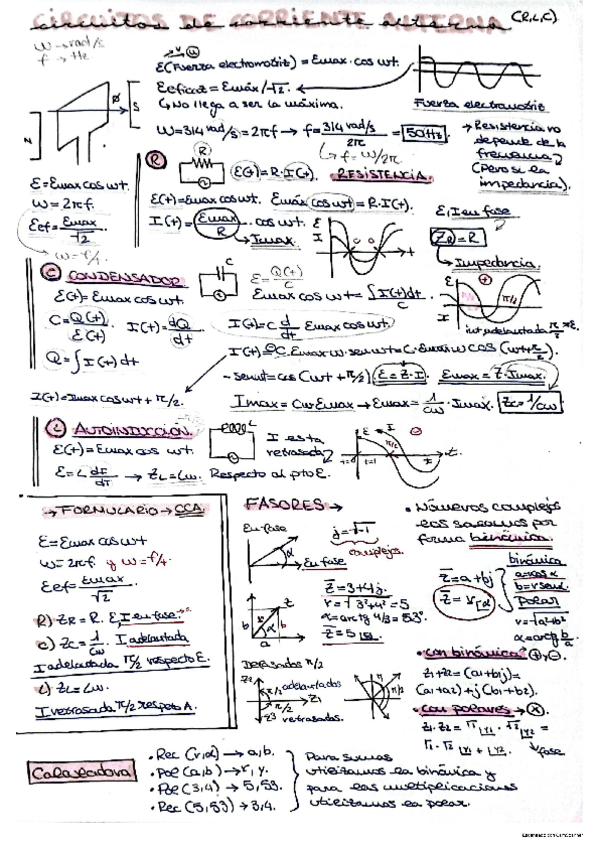 CIRCUITOS DE CORRIENTE ALTERNA (R,L,C).
ω → rad/s
f → Hz
ε(Fuerza electromotriz) = Emax · cos ωt.
Eeficaz = Emáx/√2.
↳ No llega a ser la máxima.
Fuerza electromotriz
ω = 314 rad/s = 2πf → f = 314 rad/s / 2π = 50Hz
↳ f = ω/2π
→ Resistencia no
depende de la
frecuencia
(Pero si la
impedancia).
N
S
ε = Emax cos ωt.
ω = 2πf.
Eef = Emax / √2
R
R
ε(t) = R·I(t).
RESISTENCIA.
ε(t) = Emax cos ωt. Emáx cos ωt = R·I(t).
I(t) = Emax / R · cos ωt.
↳ Imax.
ε, I en fase
ZR = R
↳ Impedancia.
C CONDENSADOR
ε(t) = Emax cos ωt.
C = Q(t) / ε(t) . I(t) = dQ / dt
Q = ∫ I(t) dt
I(t) = Imax cos ωt + π/2.
C
ε = Q(t) / C
Emax cos ωt = ∫ I(t) dt / C
I(t) = C d / dt Emax cos ωt.
- sen ωt = cos (ωt + π/2) ε = Z · I. Emax = Z · Imax.
Imax = Cω Emax → Emax = 1 / Cω · Imax. Zc = 1/Cω
L AUTOINDUCCIÓN.
ε(t) = Emax cos ωt.
ε = L dI / dT → ZL = Lω.
I esta
retrasada
Respecto al pto E.
→ FORMULARIO → CCA.
ε = Emax cos ωt
Eef = Emax / √2
R) ZR = R. ε, I en fase.
C) Zc = 1 / Cω . I adelantada
I adelantada π/2 respecto E.
L) ZL = Lω.
I retrasada π/2 respeto A.
FASORES →
En fase
α
En fase
j = √-1
complejos.
z = 3+4j.
r = √3²+4² = 5
α = arctg 4/3 = 53°
b
r
z
α
b
a
DESFASADOS π/2
z2
π/2 adelantados
z1
π/2
z3 retrasados.
• Números complejos
los sacamos por
forma binómica.
z = a+bj
z = r|α
binómica
a = r cos α
b = r sen α.
Polar
r = √a²+b²
α = arctg b/a.
• con binómica + y -.
z1+z2 = (a1+b1j) =
(a1+a2) + j (b1+b2).
• con polares → ×.
fase
Calculadora
• Rec (r,α) → a, b.
• Pol (a,b) → r, γ.
• Pol (3,4) → 5, 53.
• Rec (5,53) → 3,4.
Para sumas
utilizamos la binómica y
para las multiplicaciones
utilizamos la polar.